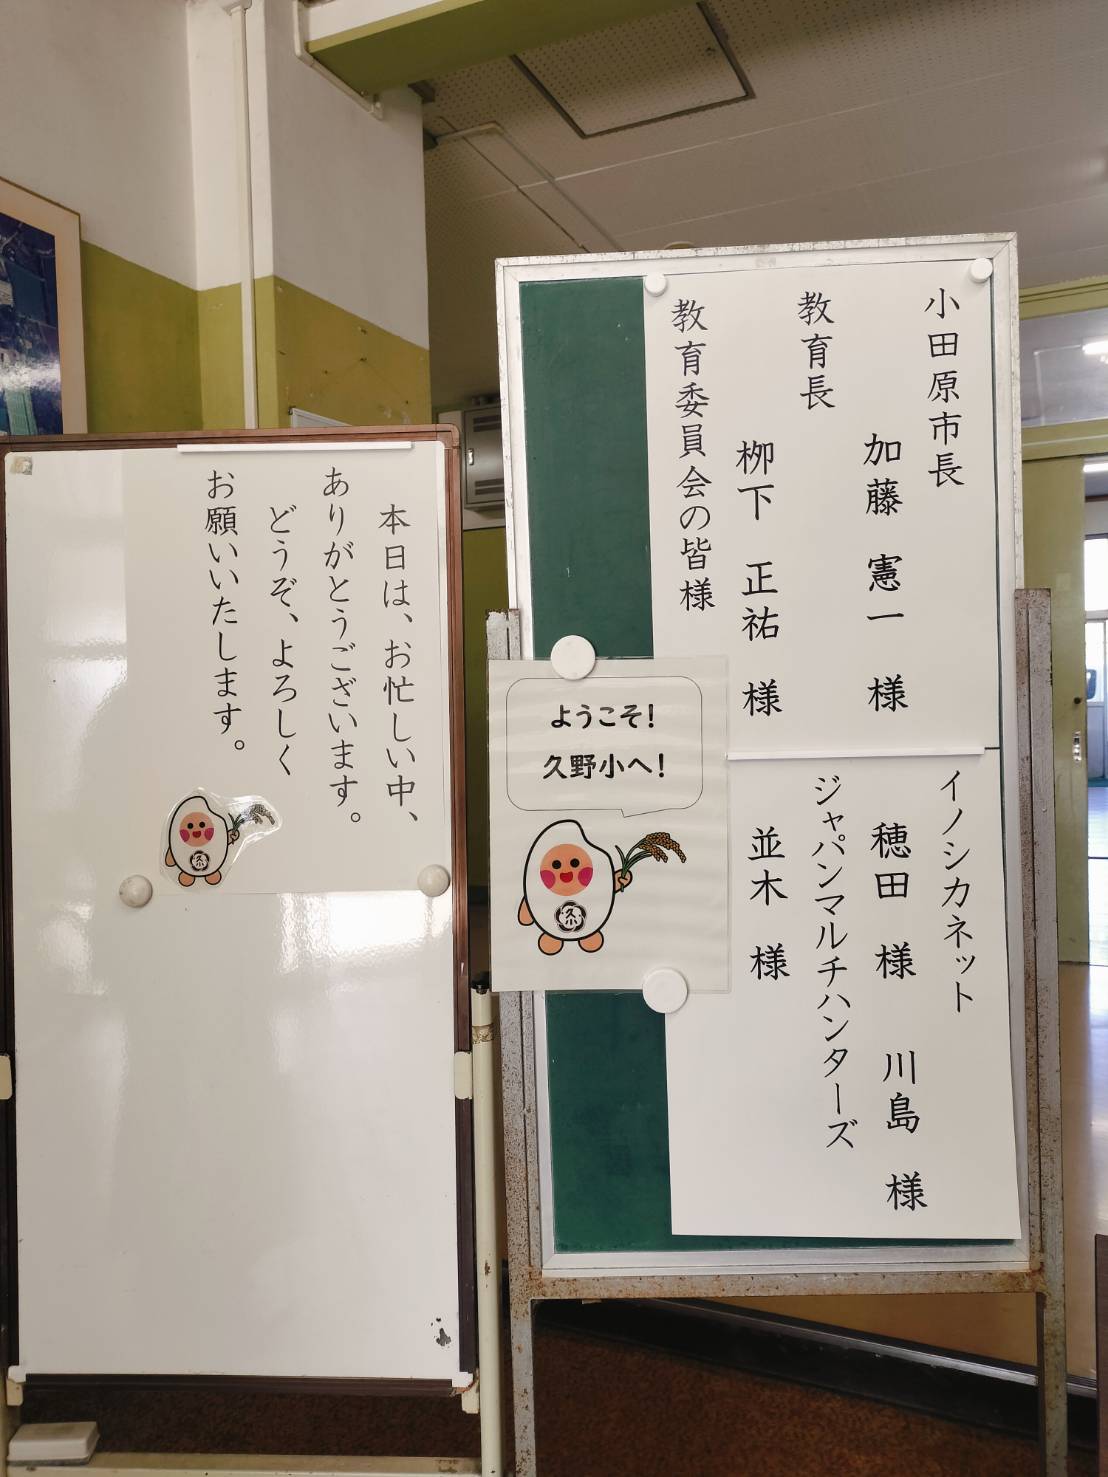 小田原市長
加藤 憲一 様
教育長
栁下 正祐 様
教育委員会の皆様
イノシカネット
穂田 様 川島 様
ジャパンマルチハンターズ
並木 様
ようこそ!
久野小へ!
本日は、お忙しい中、
ありがとうございます。
どうぞ、よろしく
お願いいたします。